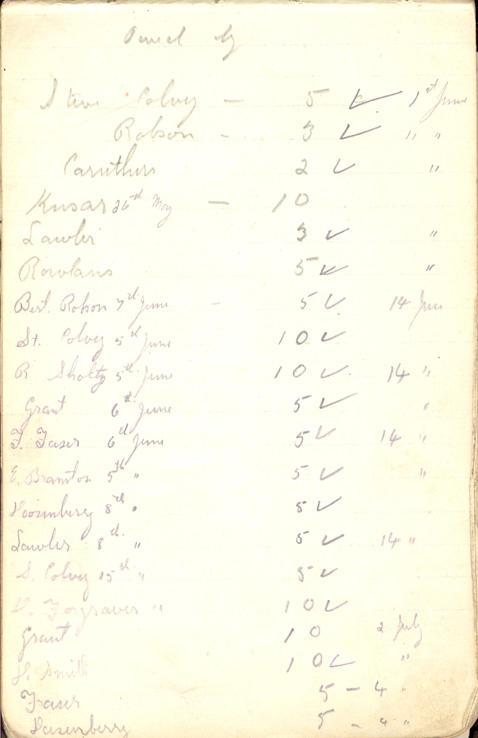 Steve Colvey - 5 ✓ 1st June
Robson - 3 ✓ " "
Caruthers 2 ✓ "
Kusar 26th May - 10
Lawler 3 ✓ "
Rowlans 5 ✓ "
Bert. Robson 7th June - 5 ✓ 14 June
St. Colvey 5th June 10 ✓
R Sholtz 5th June 10 ✓ 14 "
Grant 6th June 5 ✓ "
F. Fraser 6th June 5 ✓ 14 "
E. Bramton 5th " 5 ✓ "
8th " 5 ✓
Lawler 8th " 5 ✓ 14 "
S. Colvey 15th " 5 ✓
Forgraves " 10 ✓
Grant 10 2 July
Smith 10 ✓ "
Fraser 5 - 4 "
5 - 4 "